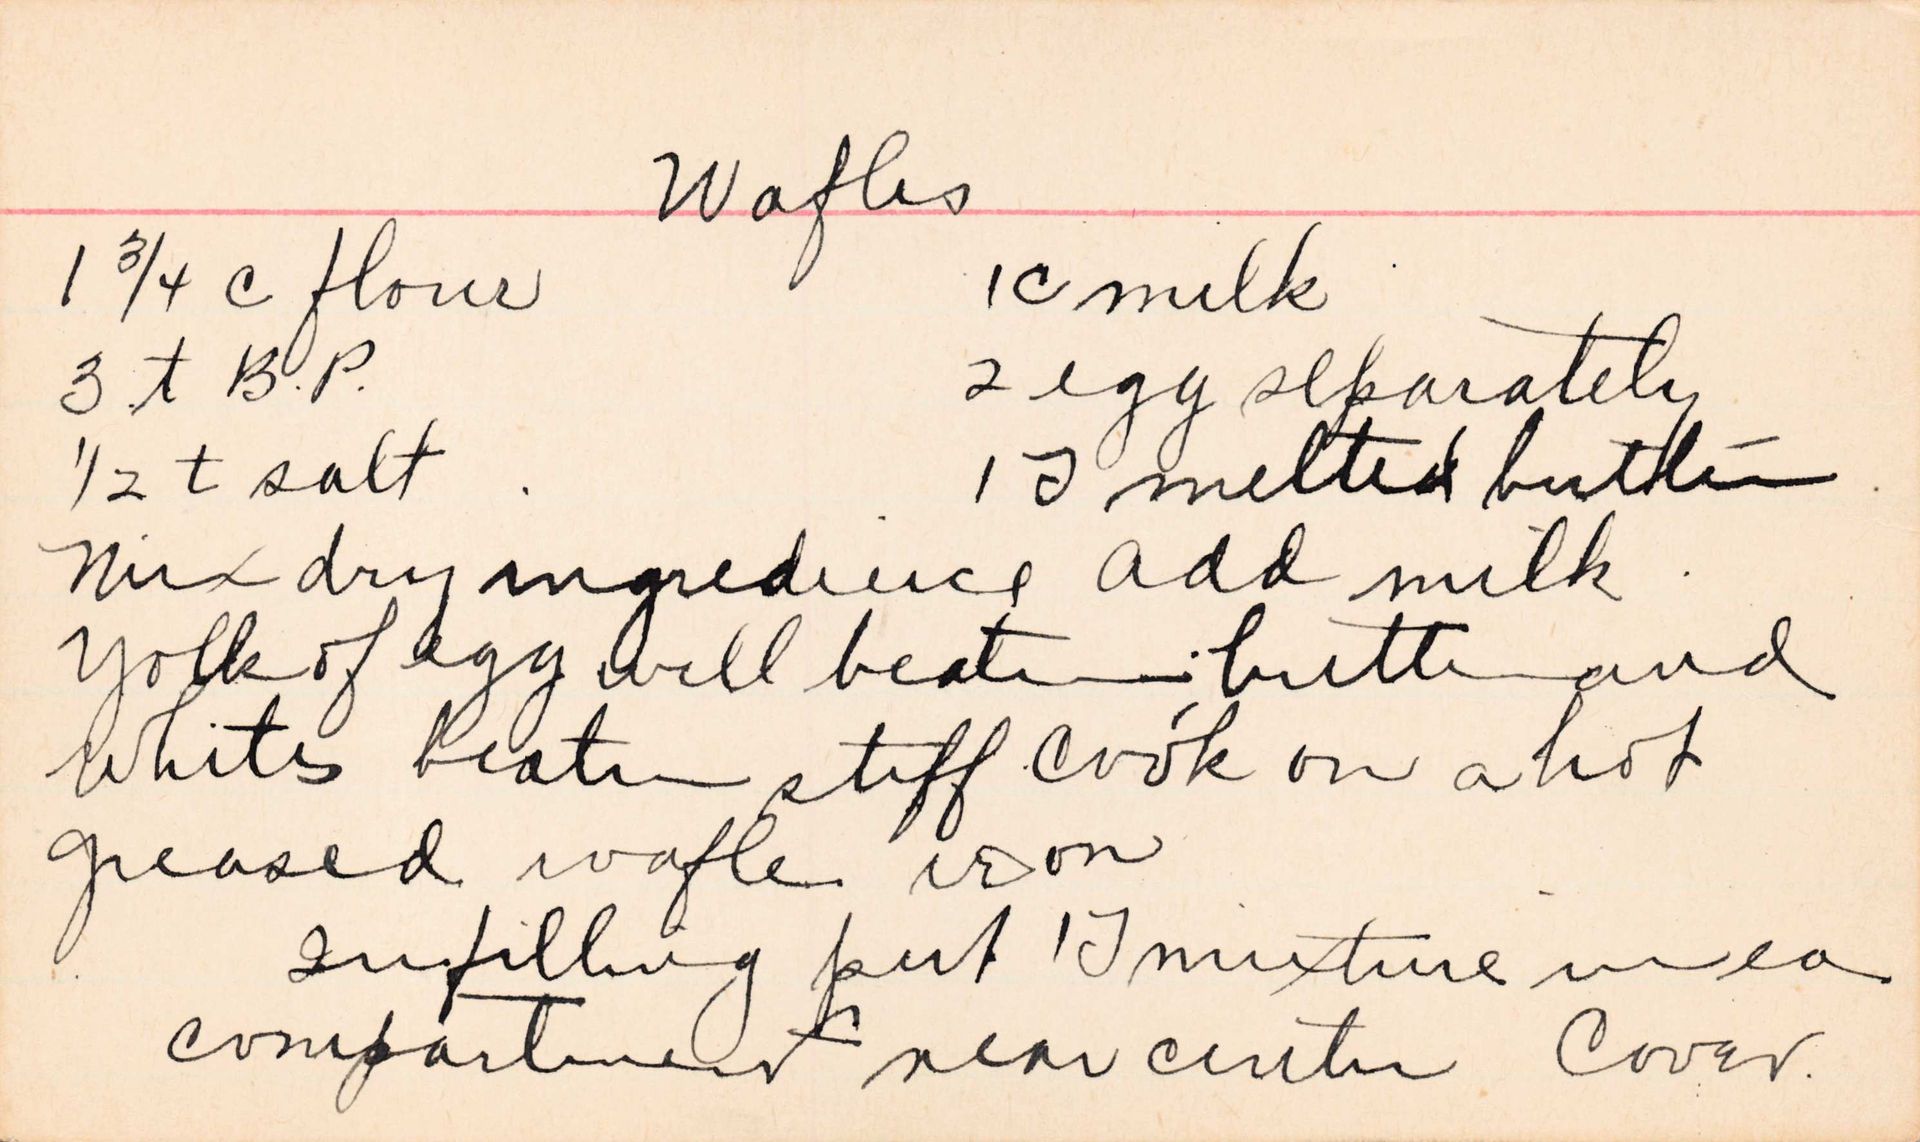 Wafles
1 3/4 c flour 1 c milk
3 t B.P. 2 egg separately
1/2 t salt 1 T melted butter
Mix dry ingredience add milk.
Yolk of egg well beaten; butter and
whites beaten stiff cook on a hot
greased wafle iron
In filling put 1 T mixture in ea
compartment near center Cover.